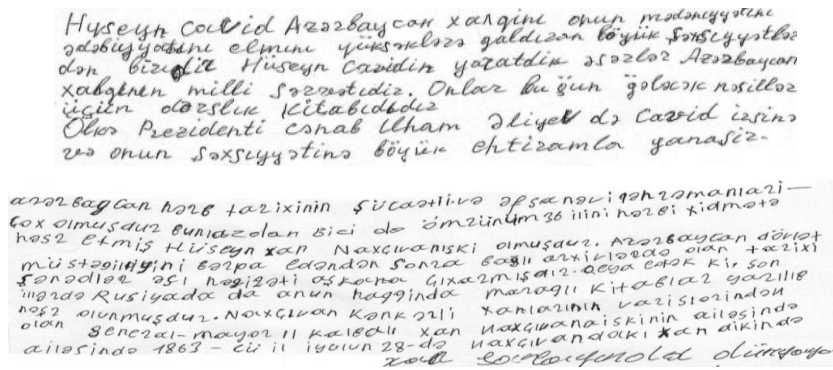 Hüseyn Cavid Azərbaycan xalqını onun mədəniyyətini
ədəbiyyatını elmini yüksəklərə qaldıran böyük şəxsiyyətlər
dən biridir Hüseyn Cavidin yaratdıқ əsərlər Azərbaycan
xalqının milli sərvətidir. Onlar bu gün gələcək nəsillər
üçün dərslik kitabıdıdır
Ölkə Prezidenti cənab İlham Əliyev də Cavid irsinə
və onun şəxsiyyətinə böyük ehtiramla yanaşır.
azərbaycan hərb tarixinin şücaətli və əfsanəvi qəhrəmanları
çox olmuşdur bunlardan biri də ömrünüm 36 ilini hərbi xidmətə
həsr etmiş Hüseyn xan Naxçıvanski olmuşdur. Azərbaycan dövlət
müstəqilliyini bərpa edəndən sonra bağlı arxivlərdə olan tarixi
sənədlər əsl həqiqəti aşkara çıxarmışdır. qeyd edək ki, son
illərdə Rusiyada da onun haqqında maraqlı kitablar yazılıb
nəşr olunmuşdur. Naxçıvan Kəngərli xanlarının varislərindən
olan general-mayor II Kalbalı xan Naxçıvanaiskinin ailəsində
ailəsində 1863-cü il iyulun 28-də naxçıvandakı xan dikində
xan